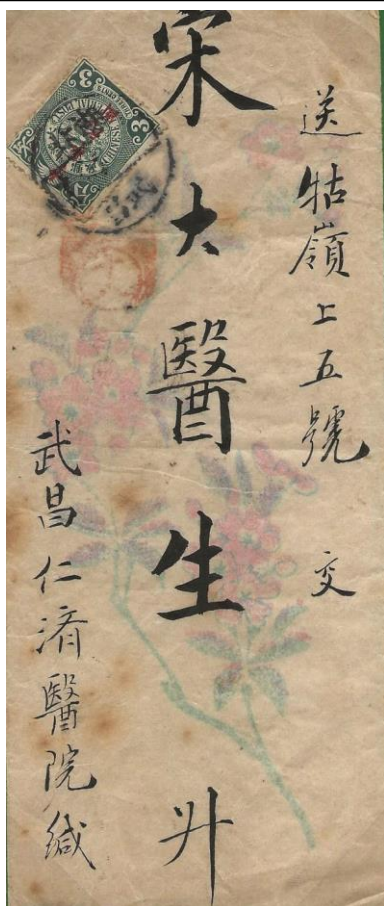 送牯嶺上五號 交
宋大醫生 升
武昌仁濟醫院緘
3
3